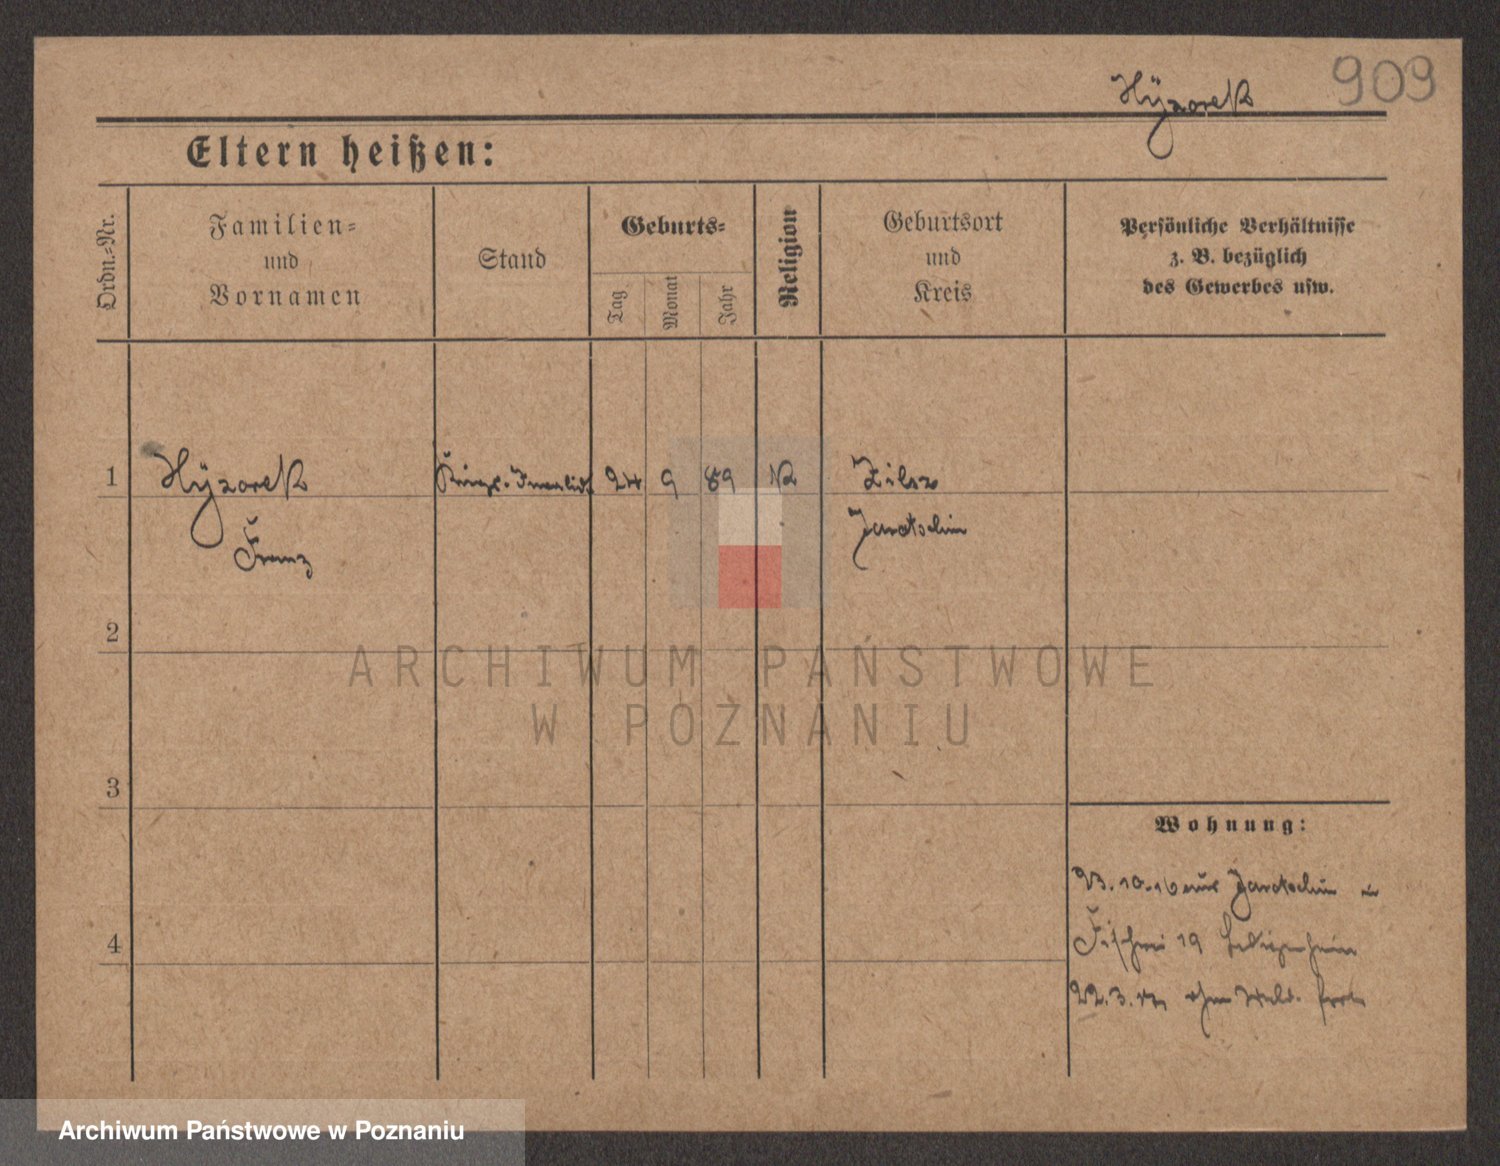 909
Hÿzorek
Eltern heißen:
Ordn.-Nr.
Familien-
und
Vornamen
Stand
Geburts-
Tag
Monat
Jahr
Religion
Geburtsort
und
Kreis
Persönliche Verhältnisse
z. B. bezüglich
des Gewerbes usw.
1
Hÿzorek
Franz
Kriegs-Invalide
24
9
89
K
Jarotschin
2
3
4
Wohnung:
23.10.16 aus Jarotschin in
Fischerei 19
22.3.17 ohne Meld. fort
ARCHIWUM PAŃSTWOWE
W POZNANIU
Archiwum Państwowe w Poznaniu